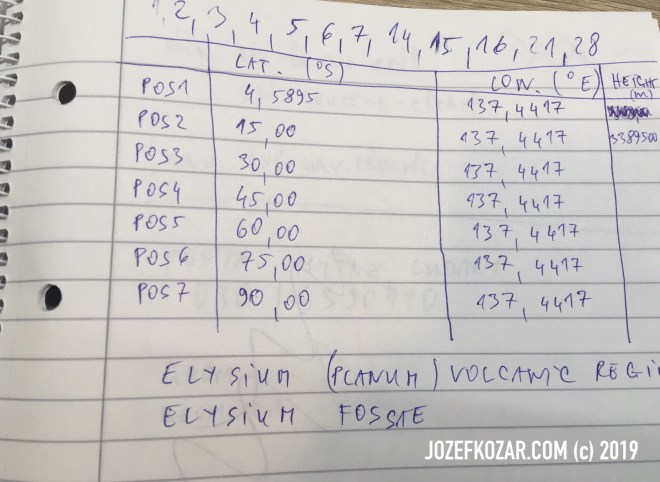 1, 2, 3, 4, 5, 6, 7, 14, 15, 16, 21, 28
LAT. (°S) LON. (°E) HEIGHT (m)
POS1 4,5895 137,4417
POS2 15,00 137,4417 3389500
POS3 30,00 137,4417
POS4 45,00 137,4417
POS5 60,00 137,4417
POS6 75,00 137,4417
POS7 90,00 137,4417
ELYSIUM (PLANUM) VOLCANIC REGI
ELYSIUM FOSSAE
JOZEFKOZAR.COM (c) 2019